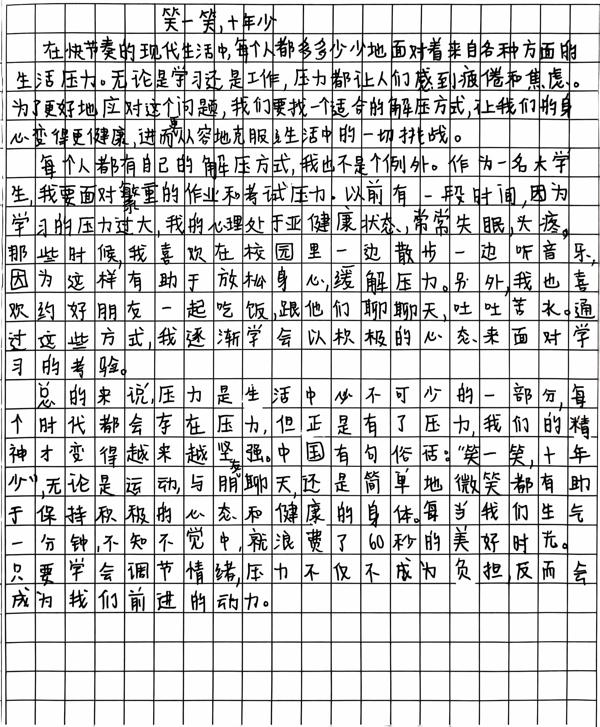 笑一笑,十年少
在快节奏的现代生活中,每个人都多多少少地面对着来自各种方面的
生活压力。无论是学习还是工作,压力都让人们感到疲倦和焦虑。
为了更好地应对这个问题,我们要找一个适合的解压方式,让我们的身
心变得更健康,进而要从容地克服生活中的一切挑战。
每个人都有自己的解压方式,我也不是个例外。作为一名大学
生,我要面对繁重的作业和考试压力。以前有一段时间,因为
学习的压力过大,我的心理处于亚健康状态,常常失眠,头疼。
那些时候,我喜欢在校园里一边散步一边听音乐,
因为这样有助于放松身心,缓解压力。另外,我也喜
欢约好朋友一起吃饭,跟他们聊聊天,吐吐苦水。通
过这些方式,我逐渐学会以积极的心态来面对学
习的考验。
总的来说,压力是生活中必不可少的一部分,每
个时代都会存在压力,但正是有了压力,我们的精
神才变得越来越坚强。中国有句俗话:“笑一笑,十年
少”,无论是运动,与朋友聊天,还是简单地微笑都有助
于保持积极的心态和健康的身体。每当我们生气
一分钟,不知不觉中,就浪费了60秒的美好时光。
只要学会调节情绪,压力不仅不成为负担,反而会
成为我们前进的动力。